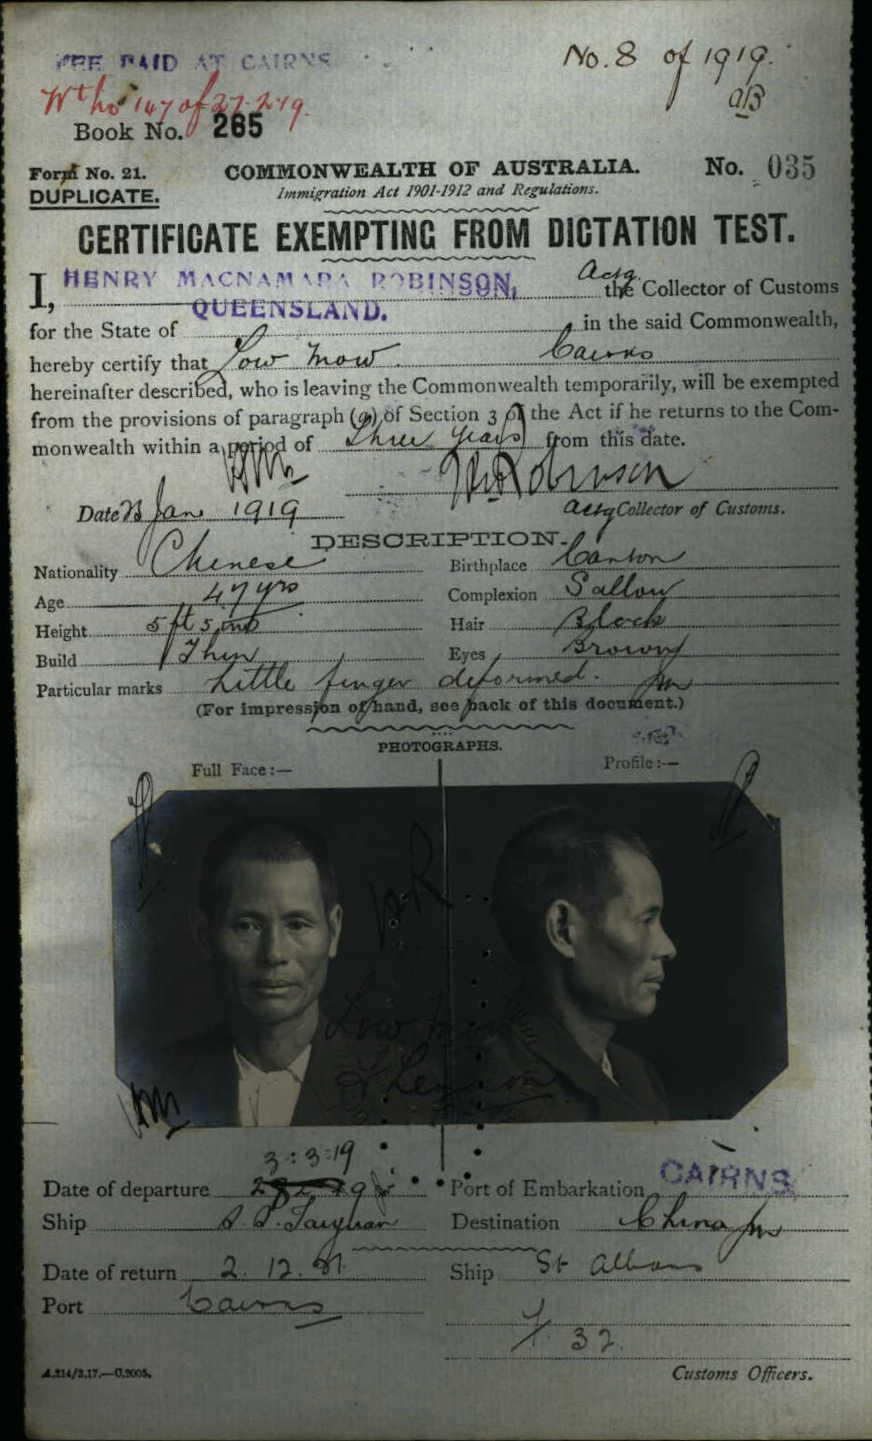 FEE PAID AT CAIRNS
No. 8 of 1919.
Wt No 147 of 27.2.19.
Book No. 265
Form No. 21. COMMONWEALTH OF AUSTRALIA. No. 035
DUPLICATE. Immigration Act 1901-1912 and Regulations.
CERTIFICATE EXEMPTING FROM DICTATION TEST.
I, HENRY MACNAMARA ROBINSON, Actg. the Collector of Customs
for the State of QUEENSLAND. in the said Commonwealth,
hereby certify that Low Mow Cairns
hereinafter described, who is leaving the Commonwealth temporarily, will be exempted
from the provisions of paragraph (a) of Section 3 of the Act if he returns to the Com-
monwealth within a period of three years from this date.
HM. Robinson
Date 23 Jan 1919 Actg Collector of Customs.
DESCRIPTION.
Nationality Chinese Birthplace Canton
Age 47 yrs Complexion Sallow
Height 5 ft 5 ins Hair Black
Build Thin Eyes Brown
Particular marks Little finger deformed.
(For impression of hand, see back of this document.)
PHOTOGRAPHS.
Full Face:— Profile:—
Low Mow
3:3:19
Date of departure Port of Embarkation CAIRNS
Ship S.S. Taiyuan Destination China
Date of return 2.12.21 Ship St Albans
Port Cairns
32.
A.214/3.17.—C.2005. Customs Officers.